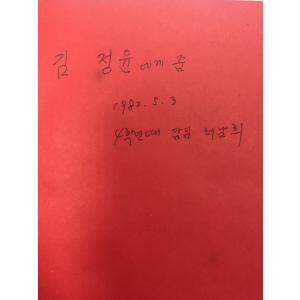 김 정윤에게 줌
1982. 5. 3
4학년때 담임 허남희